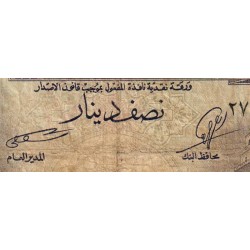 ورقة نقدية نافذة المفعول بموجب قانون الاصدار
نصف دينار
٢٧
محافظ البنك
المدير العام